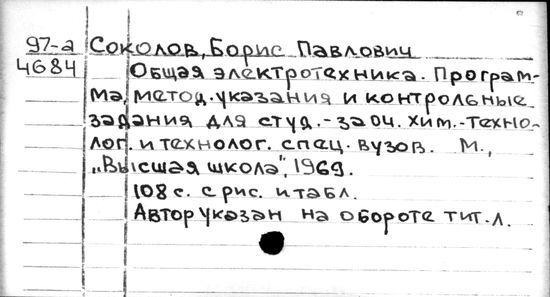 97-а Соколов, Борис Павлович
4684 Общая электротехника. Програм-
ма, метод. указания и контрольные
задания для студ.-заоч. хим.-техно-
лог. и технолог. спец. вузов. М.,
„Высшая школа", 1969.
108 с. с рис. и табл.
Автор указан на обороте тит. л.